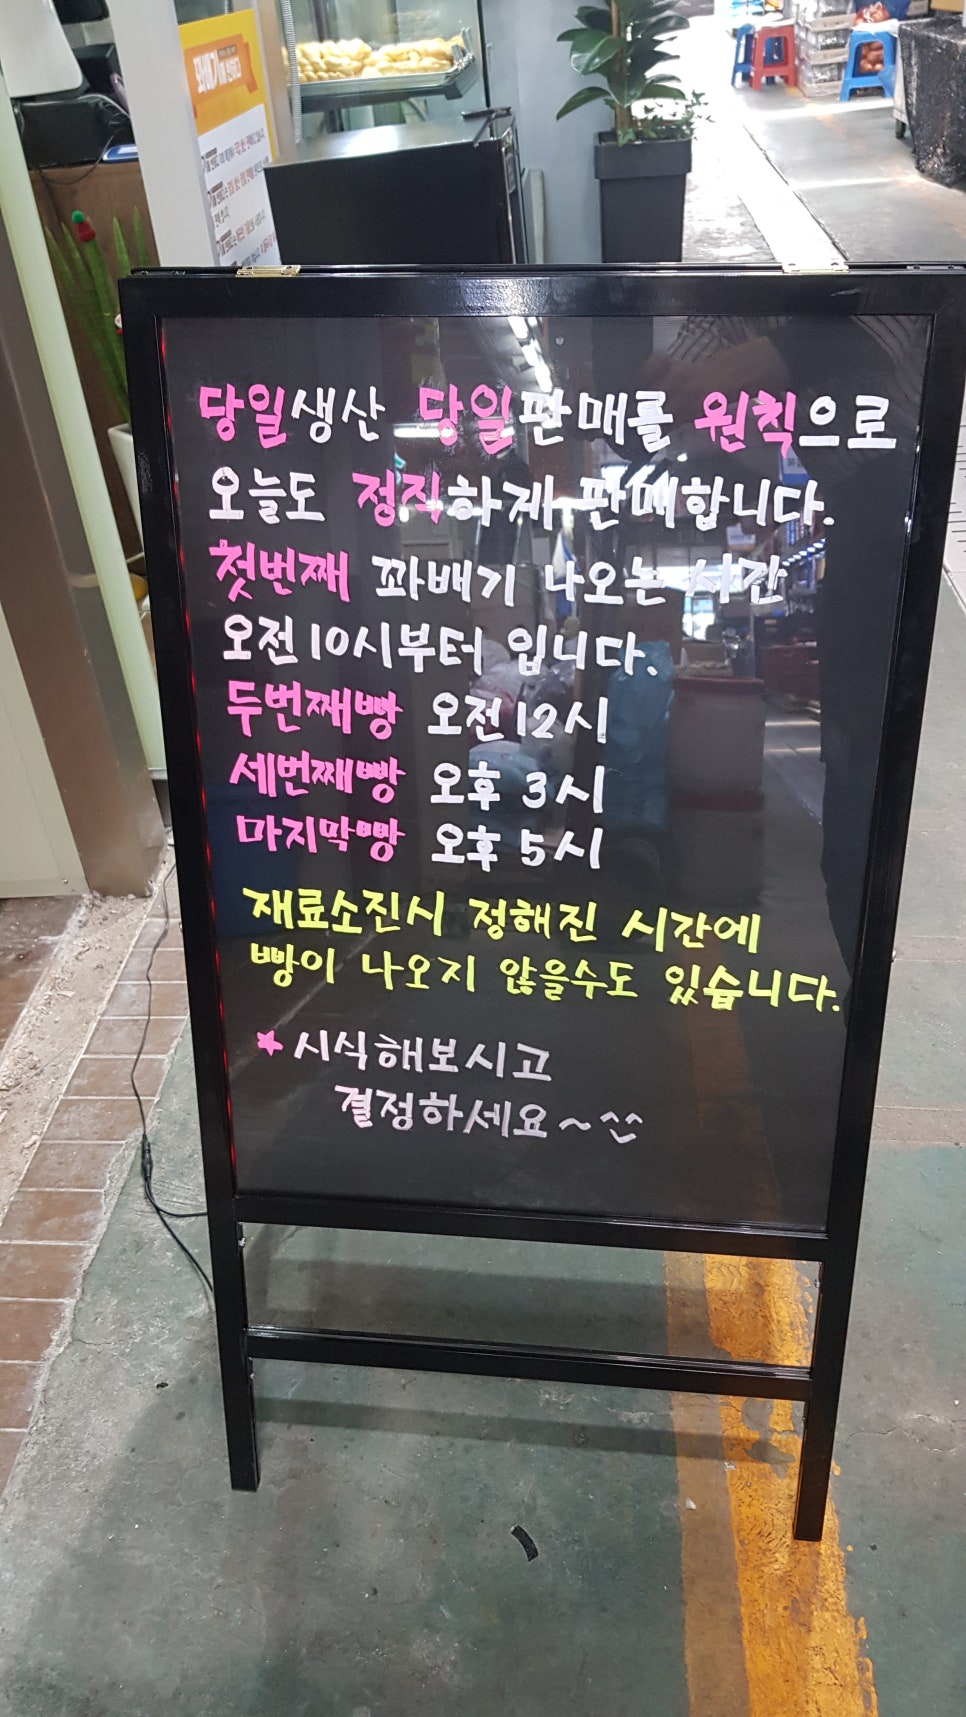 꽈배기
당일생산 당일판매를 원칙으로
오늘도 정직하게 판매합니다.
첫번째 꽈배기 나오는 시간
오전10시부터 입니다.
두번째빵 오전12시
세번째빵 오후 3시
마지막빵 오후 5시
재료소진시 정해진 시간에
빵이 나오지 않을수도 있습니다.
★시식해보시고
결정하세요~^^